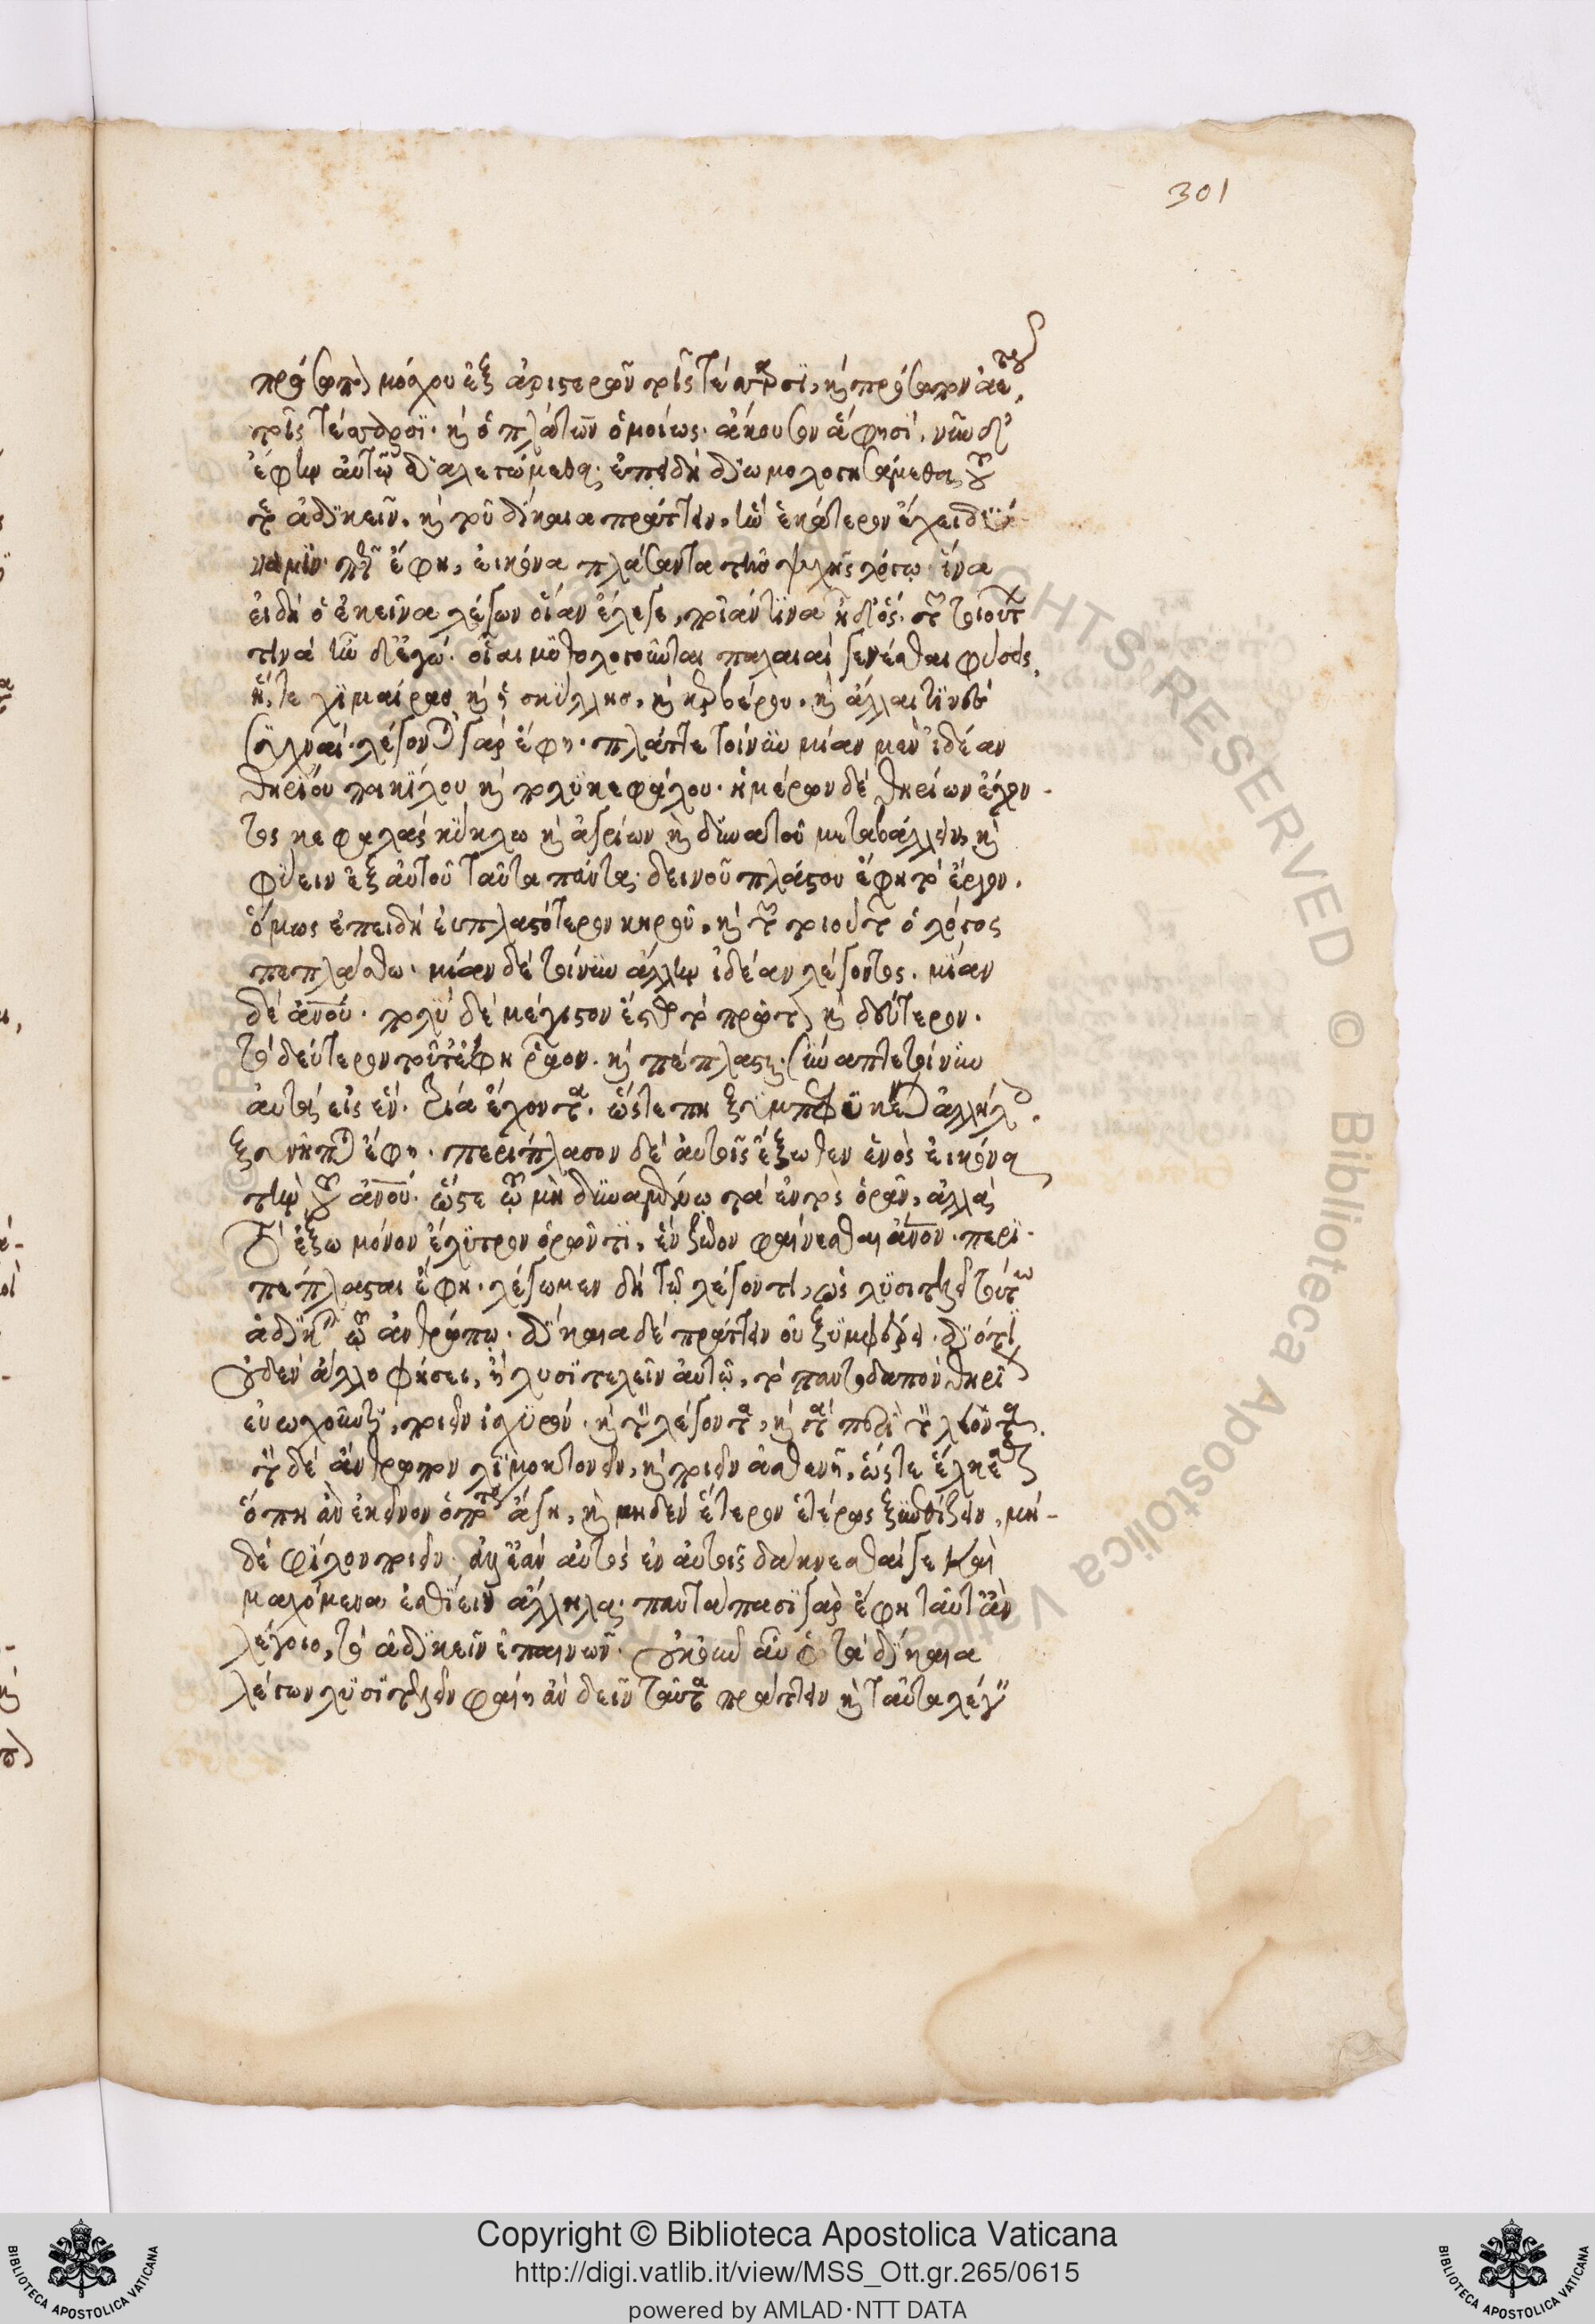 301
πρόσωπον μόσχου ἐξ ἀριστερῶν τοῖς τέσαρσϊ, καὶ πρόσωπον ἀετοῦ
τοῖς τέσαρσϊ· καὶ ὁ πλάτων ὁμοίως· ἄκουσον ἅ φησί, νῦν δὴ
ἔφην αὐτῷ διαλεγώμεθα, ἐπειδὴ διωμολογησάμεθα τό
τε ἀδϊκεῖν, καὶ τὸ δίκαια πράττειν, ἣν ἑκάτερον ἔχει δϋ-
ναμϊν. πῶς ἔφη, εἰκόνα πλάσαντα τῆς ψυχῆς λόγῳ ἵνα
εἰδῇ ὁ ἐκεῖνα λέγων οἷα ἔλεγε, ποίαν τϊνὰ ἡδ' ὅς· τῶν τοιούτων
τινά ἦν δ' ἐγώ· οἷαι μϋθολογοῦνται παλαιαὶ γενέσθαι φύσεις,
ἥ, τε χϊμαίρας καὶ ἡ σκϋλλης, καὶ κερβέρου, καὶ ἄλλαι τϊνὲς
συχναί· λέγονται γὰρ ἔφη· πλάττε τοίνϋν μίαν μὲν ἰδέαν
θηρίου ποικϊλου καὶ πολϋκεφάλου· ἡμέρων δὲ θηρίων ἔχον-
τος κεφαλὰς κϋκλω καὶ ἀγρίων καὶ δϋνατοῦ μεταβάλλειν καὶ
φϋειν ἐξ αὐτοῦ ταῦτα πάντα· δεινοῦ πλάστου ἔφη τὸ ἔργον,
ὅμως ἐπειδὴ εὐπλαστότερον κηροῦ, καὶ τῶν τοιούτων ὁ λόγος
πεπλάσθω· μίαν δὲ τοίνϋν ἄλλην ἰδέαν λέοντος· μϊαν
δὲ ἀνου· πολὺ δὲ μέγιστον ἔστω τὸ πρῶτον καὶ δεύτερον
τὸ δεύτερον ταῦτ' ἔφη ῥᾶον· καὶ πέπλασται· σύναπτε τοίνϋν
αὐτὰ εἰς ἕν· τρία ἔχοντα· ὥστε πη ξυμπεφϋκέναι ἀλλήλοις.
ξυνῆπται ἔφη· περίπλασον δὲ αὐτοῖς ἔξωθεν ἑνὸς εἰκόνα
τὴν τοῦ ἀνου· ὥστε τῷ μὴ δϋναμένω τὰ ἐντὸς ὁρᾶν, ἀλλὰ
τὸ ἔξω μόνον ἔλϋτρον ὁρῶντϊ, ἓν ζῶον φαίνεσθαι ἀνον· περϊ-
πέπλασται ἔφη· λέγωμεν δὴ τῷ λέγοντι, ὡς λϋσιτελεῖ τούτω
ἀδϊκεῖν τῷ ἀνθρώπῳ· δϊκαια δὲ πράττειν οὐ ξϋμφέρει· δϊότι
οὐδὲν ἄλλο φήσει, ἢ λυσϊτελεῖν αὐτῷ, τὸ παντοδαπὸν θηρίον
εὐωχοῦντϊ, ποιεῖν ἰσχϋρόν· καὶ τὸν λέοντα, καὶ τὰ περὶ τὸν λέοντα.
τὸν δὲ ἄνθρωπον λϊμοκτονεῖν, καὶ ποιεῖν ἀσθενῆ, ὥστε ἕλκεσθαι
ὅπη ἂν ἐκείνων ὁπότερον ἄγη, καὶ μηδὲν ἕτερον ἑτέρως ξϋνεθίζειν, μη-
δὲ φϊλον ποιεῖν· ἀλλ' ἐᾶν αὐτὰ ἐν αὐτοῖς δάκνεσθαί γε καὶ
μαχόμενα ἐσθίειν ἄλληλα· παντάπασϊ γὰρ ἔφη ταῦτ' ἂν
λέγοιο, τὸ ἀδϊκεῖν ἐπαινῶν· οὐκοῦν αὖ ὁ τὰ δϊκαια
λέγων λϋσϊτελεῖν φαίη ἂν δεῖν ταῦτα πράττειν καὶ ταῦτα λέγειν
Copyright © Biblioteca Apostolica Vaticana
http://digi.vatlib.it/view/MSS_Ott.gr.265/0615
powered by AMLAD·NTT DATA